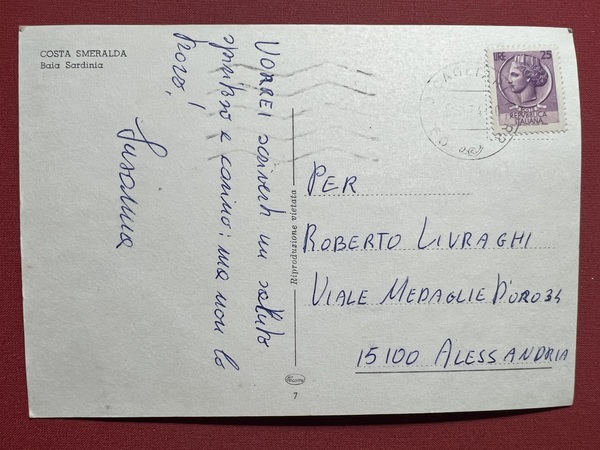 COSTA SMERALDA
Baia Sardinia
VORREI scriverti un saluto
spiritoso e carino: ma non lo
trovo!
Susanna
Riproduzione vietata
7
LIRE 25
POSTE
REPVBBLICA
ITALIANA
PER
ROBERTO LIVRAGHI
VIALE MEDAGLIE D'ORO 34
15100 ALESSANDRIA